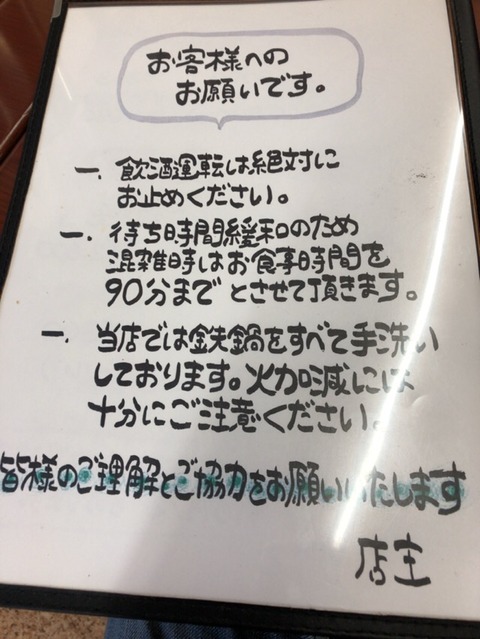 お客様への
お願いです。
一. 飲酒運転は絶対に
お止めください。
一. 待ち時間緩和のため
混雑時はお食事時間を
90分までとさせて頂きます。
一. 当店では鉄鍋をすべて手洗い
しております。火加減には
十分にご注意ください。
皆様のご理解とご協力をお願いいたします
店主